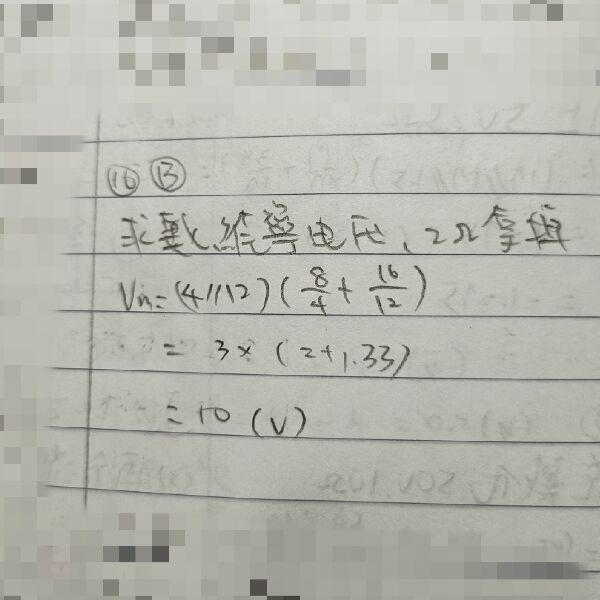 ⑯ Ⓑ
求戴維寧电压, 2Ω拿掉
Vin = (4//12)(8/4 + 16/12)
= 3×(2+1.33)
= 10 (V)